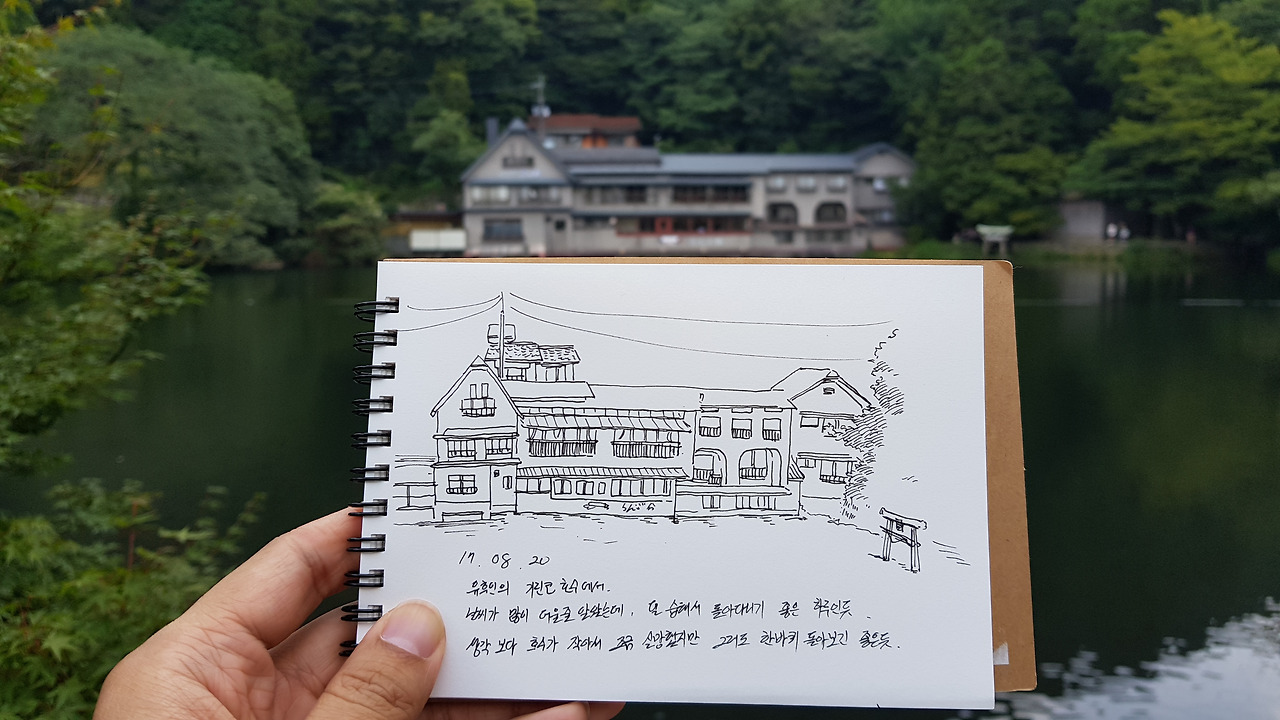 17. 08. 20
유후인의 기린코 호수에서.
날씨가 많이 더울줄 알았는데, 덜 습해서 돌아다니기 좋은 하루인듯.
생각 보다 호수가 작아서 조금 실망했지만 그래도 한바퀴 돌아보긴 좋은듯.